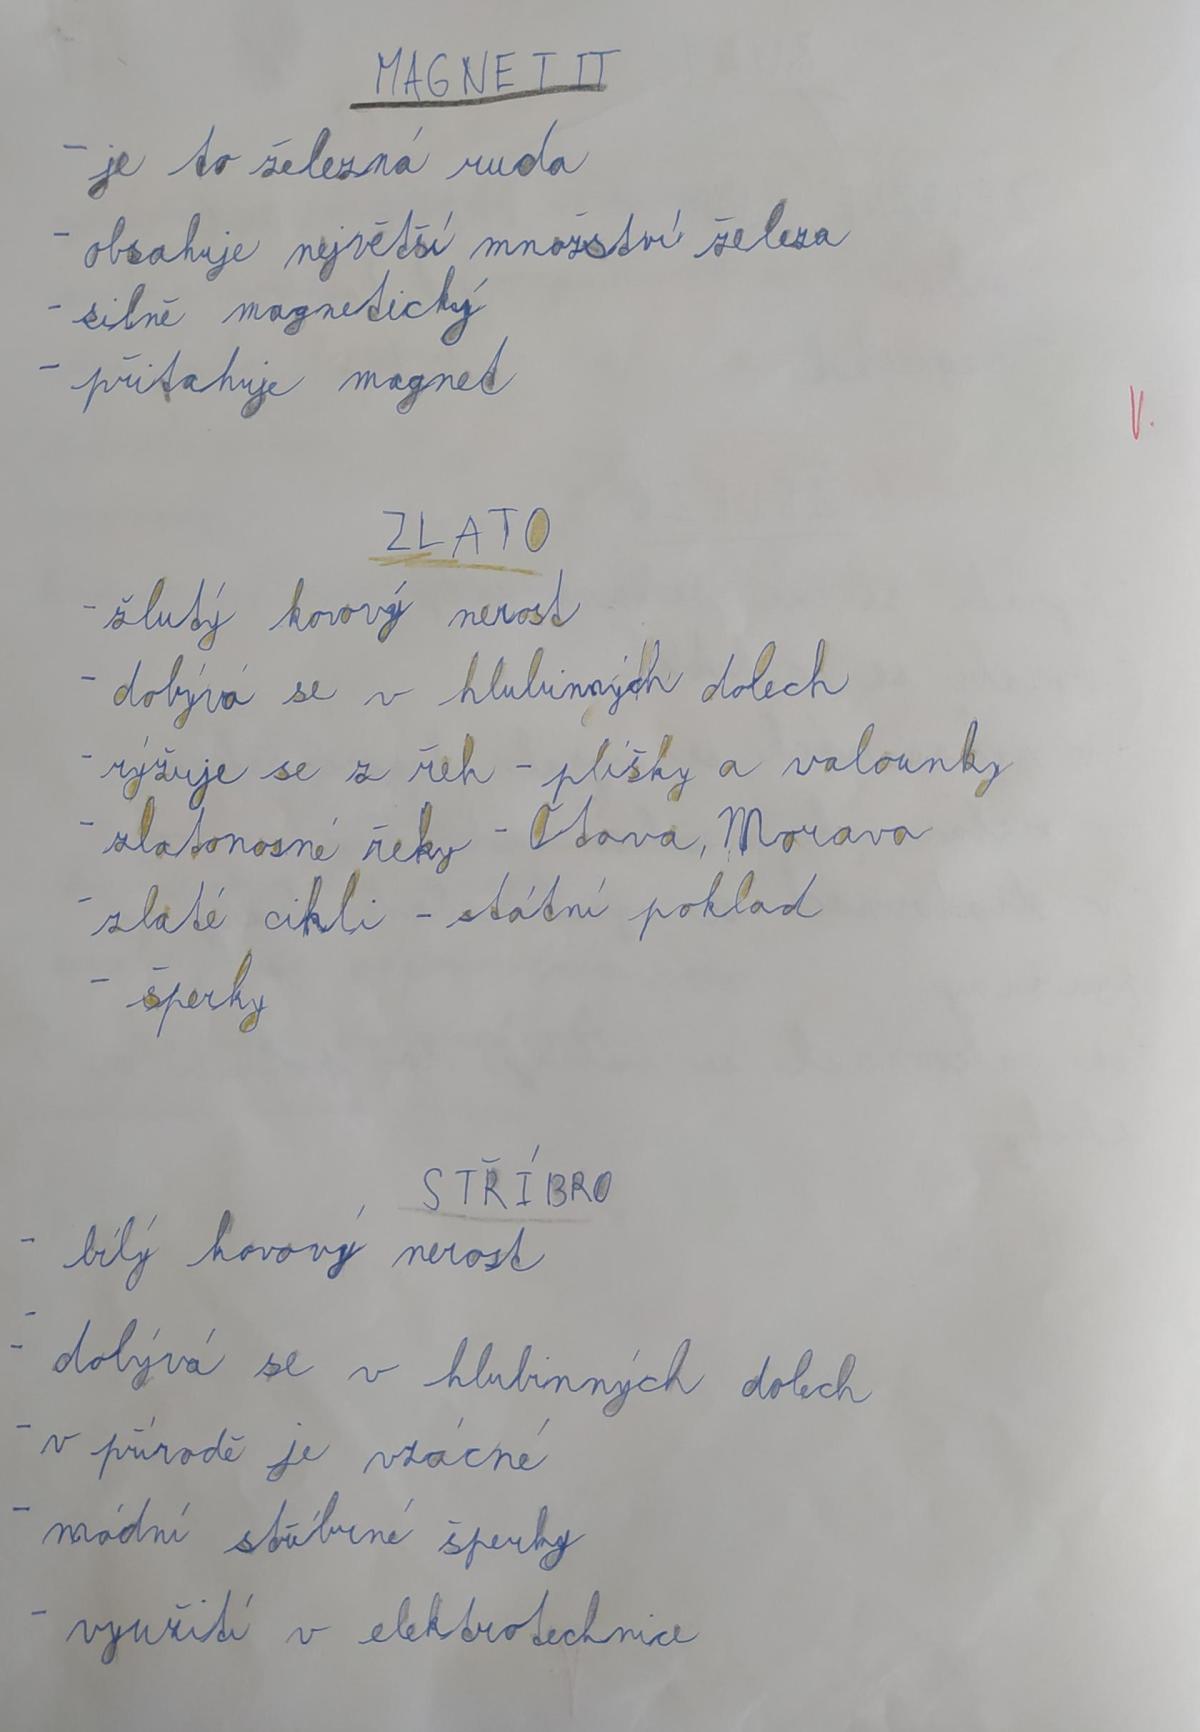 MAGNETIT
- je to železná ruda
- obsahuje největší množství železa
- silně magnetický
- přitahuje magnet
V.
ZLATO
- žlutý kovový nerost
- dobývá se v hlubinných dolech
- rýžuje se z řek - plíšky a valounky
- zlatonosné řeky - Otava, Morava
- zlaté cikli - státní poklad
- šperky
STŘÍBRO
- bílý kovový nerost
-
- dobývá se v hlubinných dolech
- v přírodě je vzácné
- módní stříbrné šperky
- využití v elektrotechnice